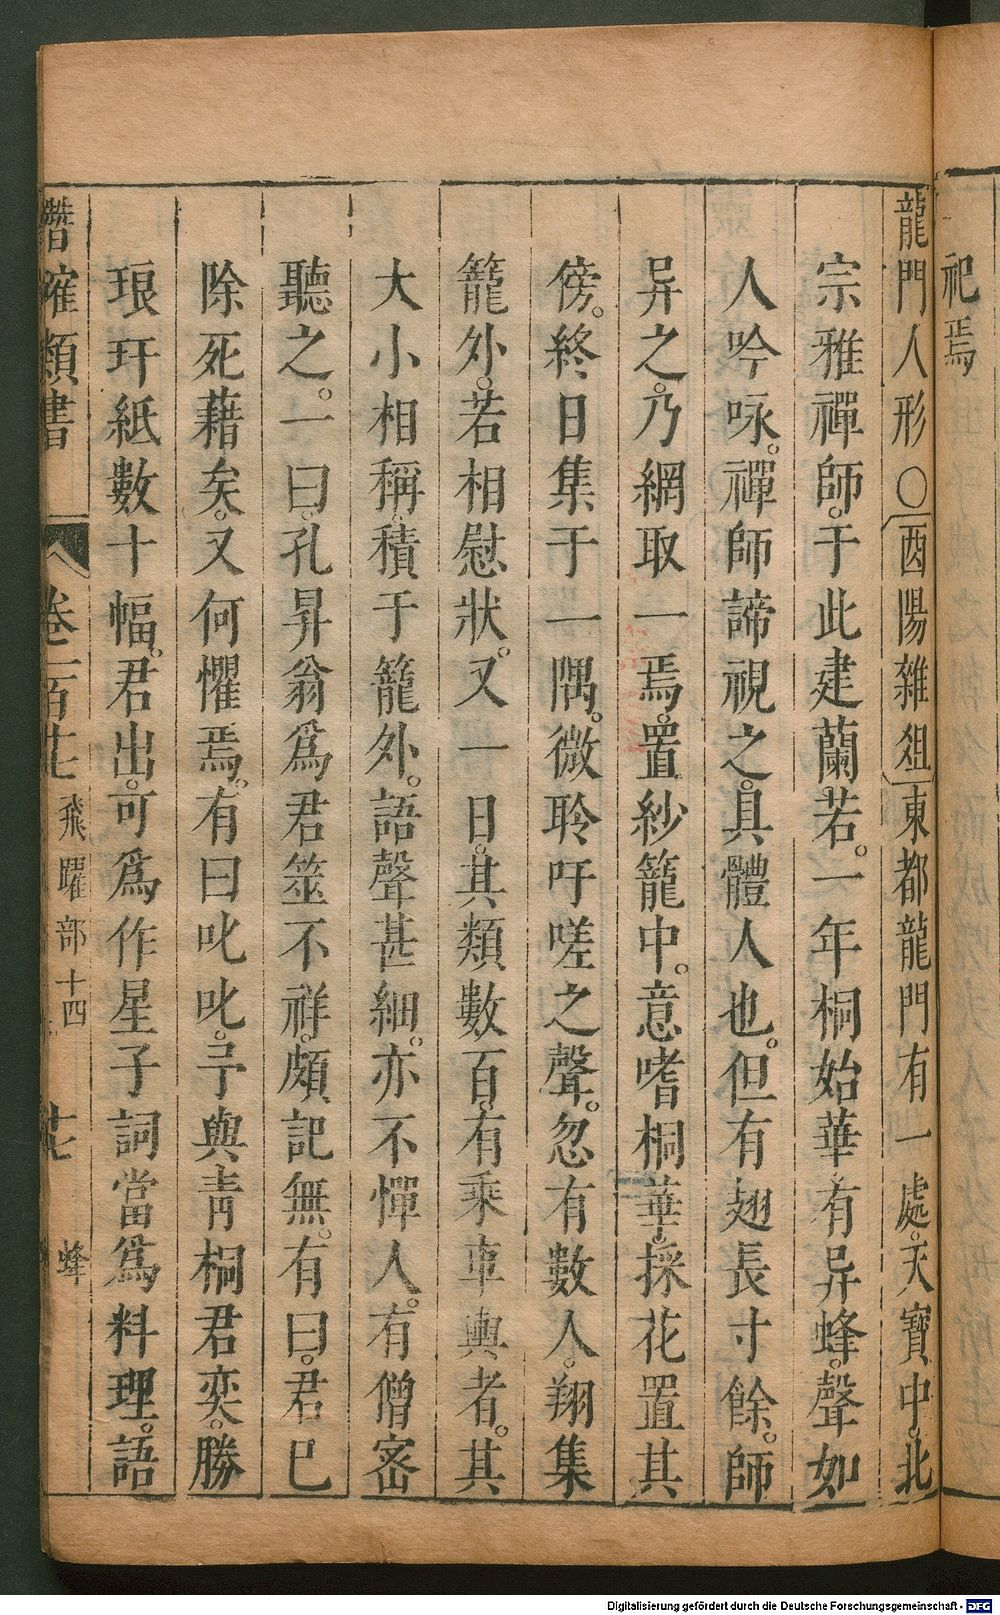 祀焉
龍門人形○酉陽雜俎東都龍門有一處。天寶中。北
宗雅禪師。于此建蘭若。一年桐始華有异蜂。聲如
人吟咏。禪師諦視之。具體人也。但有翅長寸餘。師
异之。乃網取一焉。置紗籠中。意嗜桐華。採花置其
傍。終日集于一隅。微聆吁嗟之聲。忽有數人。翔集
籠外。若相慰狀。又一日。其類數百。有乘車輿者。其
大小相稱。積于籠外。語聲甚細。亦不憚人。有僧密
聽之。一曰。孔昇翁爲君筮不祥。頗記無。有曰。君已
除死藉矣。又何懼焉。有曰叱叱。予與青桐君奕。勝
琅玕紙數十幅。君出。可爲作星子詞當爲料理。語
潛確類書 卷一百廿 飛躍部十四 廿 蜂
Digitalisierung gefördert durch die Deutsche Forschungsgemeinschaft - DFG